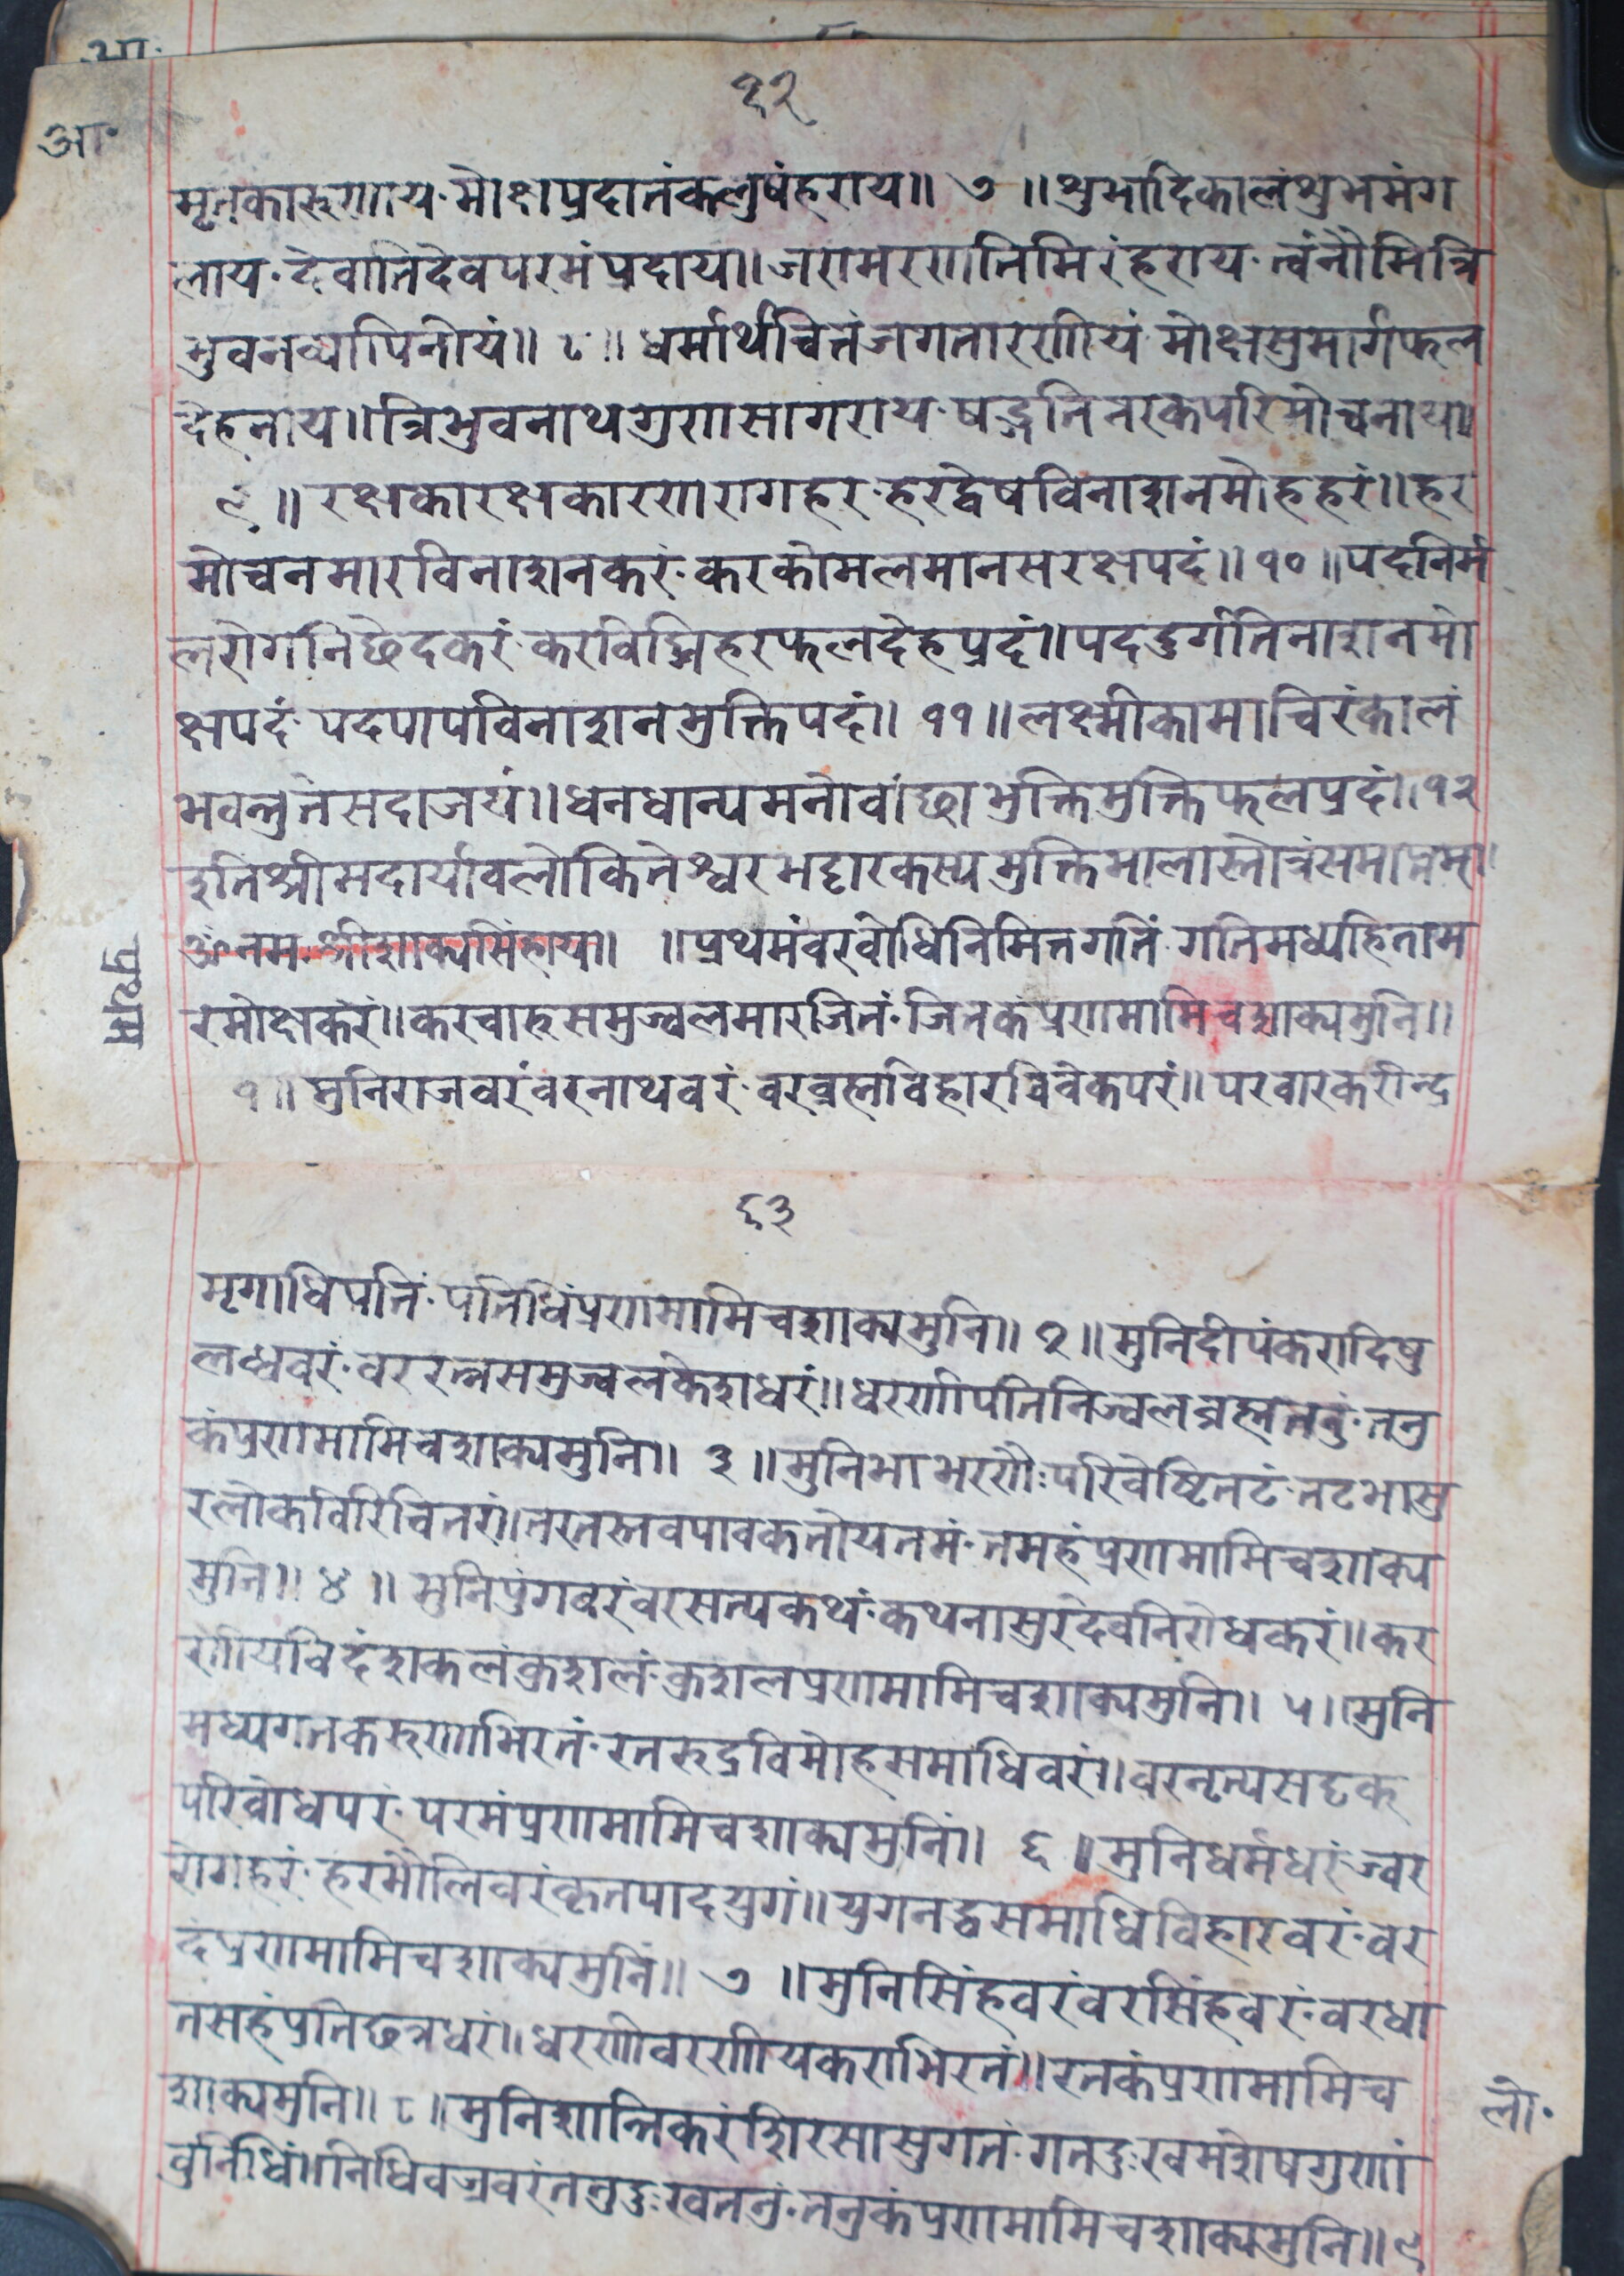 आ॰
१२
आ॰
मृतकारुणाय॰मोक्षप्रदानंकलुषंहराय॥ ७ ॥शुभादिकालंशुभमंग
लाय॰देवातिदेवपरमंप्रदाय॥जरामरणतिमिरंहराय॰त्वंनौमित्रि
भुवनव्यापिनीयं॥ ८ ॥ धर्मार्थचित्तंजगतारणीयं मोक्षसुमार्गफल
देहनाय॥त्रिभुवनाथगुणसागराय॰षड्गतिनरकपरिमोचनाय॥
९ ॥ रक्षकारक्षकारणरागहर॰हरद्वेषविनाशनमोहहरं॥हर
मोचनमारविनाशनकरं॰करकोमलमानसरक्षपदं॥१०॥पदनिर्म
लरोगनिछेदकरं॰करविघ्निहरफलदेहप्रदं॥पददुर्गतिनाशनमो
क्षपदं॰पदपापविनाशनमुक्तिपदं॥ ११ ॥लक्ष्मीकामाचिरंकालं
भवन्तुतेसदाजयं॥धनधान्यमनोवांछाभुक्तिमुक्तिफलप्रदं॥१२
इतिश्रीमदार्यावलोकितेश्वरभट्टारकस्यभुक्तिमालास्तोत्रंसमाप्तम्॥
ॐनमःश्रीशाक्यसिंहाय॥ ॥प्रथमंवरवोधिनिमित्तगतिं॰गतिमध्यहिताम
रमोक्षकरं॥करचारुसमुज्वलमारजितं॰जितकंप्रणमामिचशाक्यमुनि॥
प्रथम
१॥ मुनिराजवरंवरनाथवरं॰वरव्रह्मविहारविवेकपरं॥परवारकरीन्द्र
१३
मृगाधिपतिं॰पतिधिंप्रणमामिचशाक्यमुनि॥ २ ॥मुनिदीपंकरादिषु
लध्ववरं॰वररत्नसमुज्वलकेशधरं॥धरणीपतिनिज्वलव्रह्मतनुं॰तनु
कंप्रणमामिचशाक्यमुनि॥ ३ ॥मुनिभाभरणैःपरिवेष्टितटं॰तटभासु
रलोकविरिंचिनरं॥नरतरुनवपावकतोयतमं॰तमहंप्रणमामिचशाक्य
मुनि॥ ४ ॥ मुनिपुंगवरंवरसत्यकथं॰कथनासुरदेवनिरोधकरं॥कर
णीयविदंशकलंक्रशलं॰क्रशलप्रणमामिचशाक्यमुनि॥ ५॥मुनि
मध्यगतकरुणाभिरतं॰रतरुद्रविमोहसमाधिवरं॥वरनृत्यसदृक
परिवोधपरं॰परमंप्रणमामिचशाक्यमुनिं॥ ६ ॥मुनिधर्मधरंज्वर
रोगहरं॰हरमौलिवरंकृतपादयुगं॥युगनद्धसमाधिविहारवरं॰वर
दंप्रणमामिचशाक्यमुनिं॥ ७ ॥मुनिसिंहवरंवरसिंहवरं॰वरधा
तसहंप्रतिछत्रधरं॥धरणीवरणीयकराभिरतं॥रतकंप्रणमामिच
शाक्यमुनि॥ ८॥मुनिशान्तिकरंशिरसासुगतं॰गतदुःखमशेषगुणां
लो॰
वुनिधिं॥निधिवज्रवरंतनुदुःखतनुं॰तनुकंप्रणमामिचशाक्यमुनि॥९